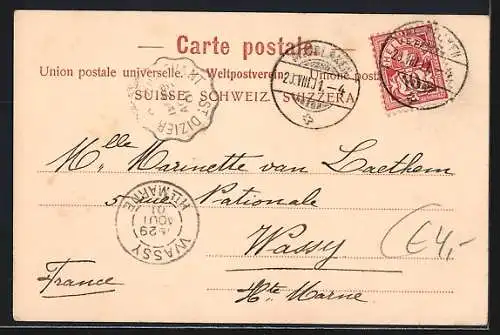 Carte postale.
Union postale universelle. Weltpostverein. Unione
SUISSE. SCHWEIZ. SVIZZERA.
23.VIII.01.-4
ST DIZIER
10
Mlle Marinette van Laethem
5 rue Nationale
Wassy
Hte Marne
France
WASSY
HTE MARNE
29
AOUT
01
€4,-